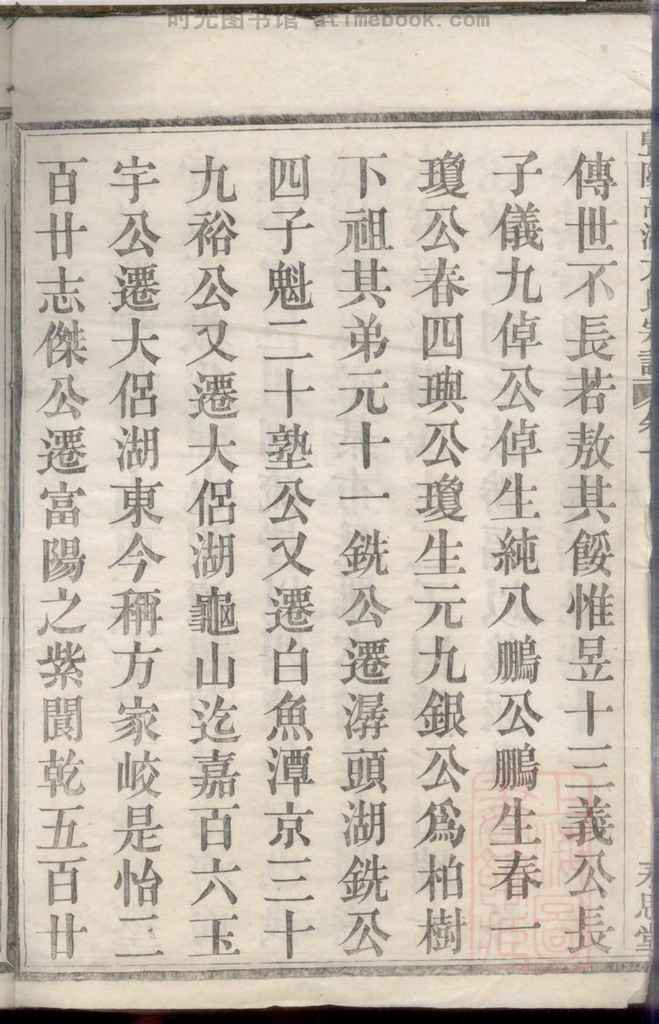 时光图书馆 atimebook.com
傳世不長若敖其餒惟昱十三義公長
子儀九倬公倬生純八鵬公鵬生春一
瓊公春四璵公瓊生元九銀公爲柏樹
下祖其弟元十一銑公遷潺頭湖銑公
四子魁二十塾公又遷白魚潭京三十
九裕公又遷大侶湖龜山迄嘉百六玉
宇公遷大侶湖東今稱方家峧是怡二
百廿志傑公遷富陽之紫閬乾五百廿